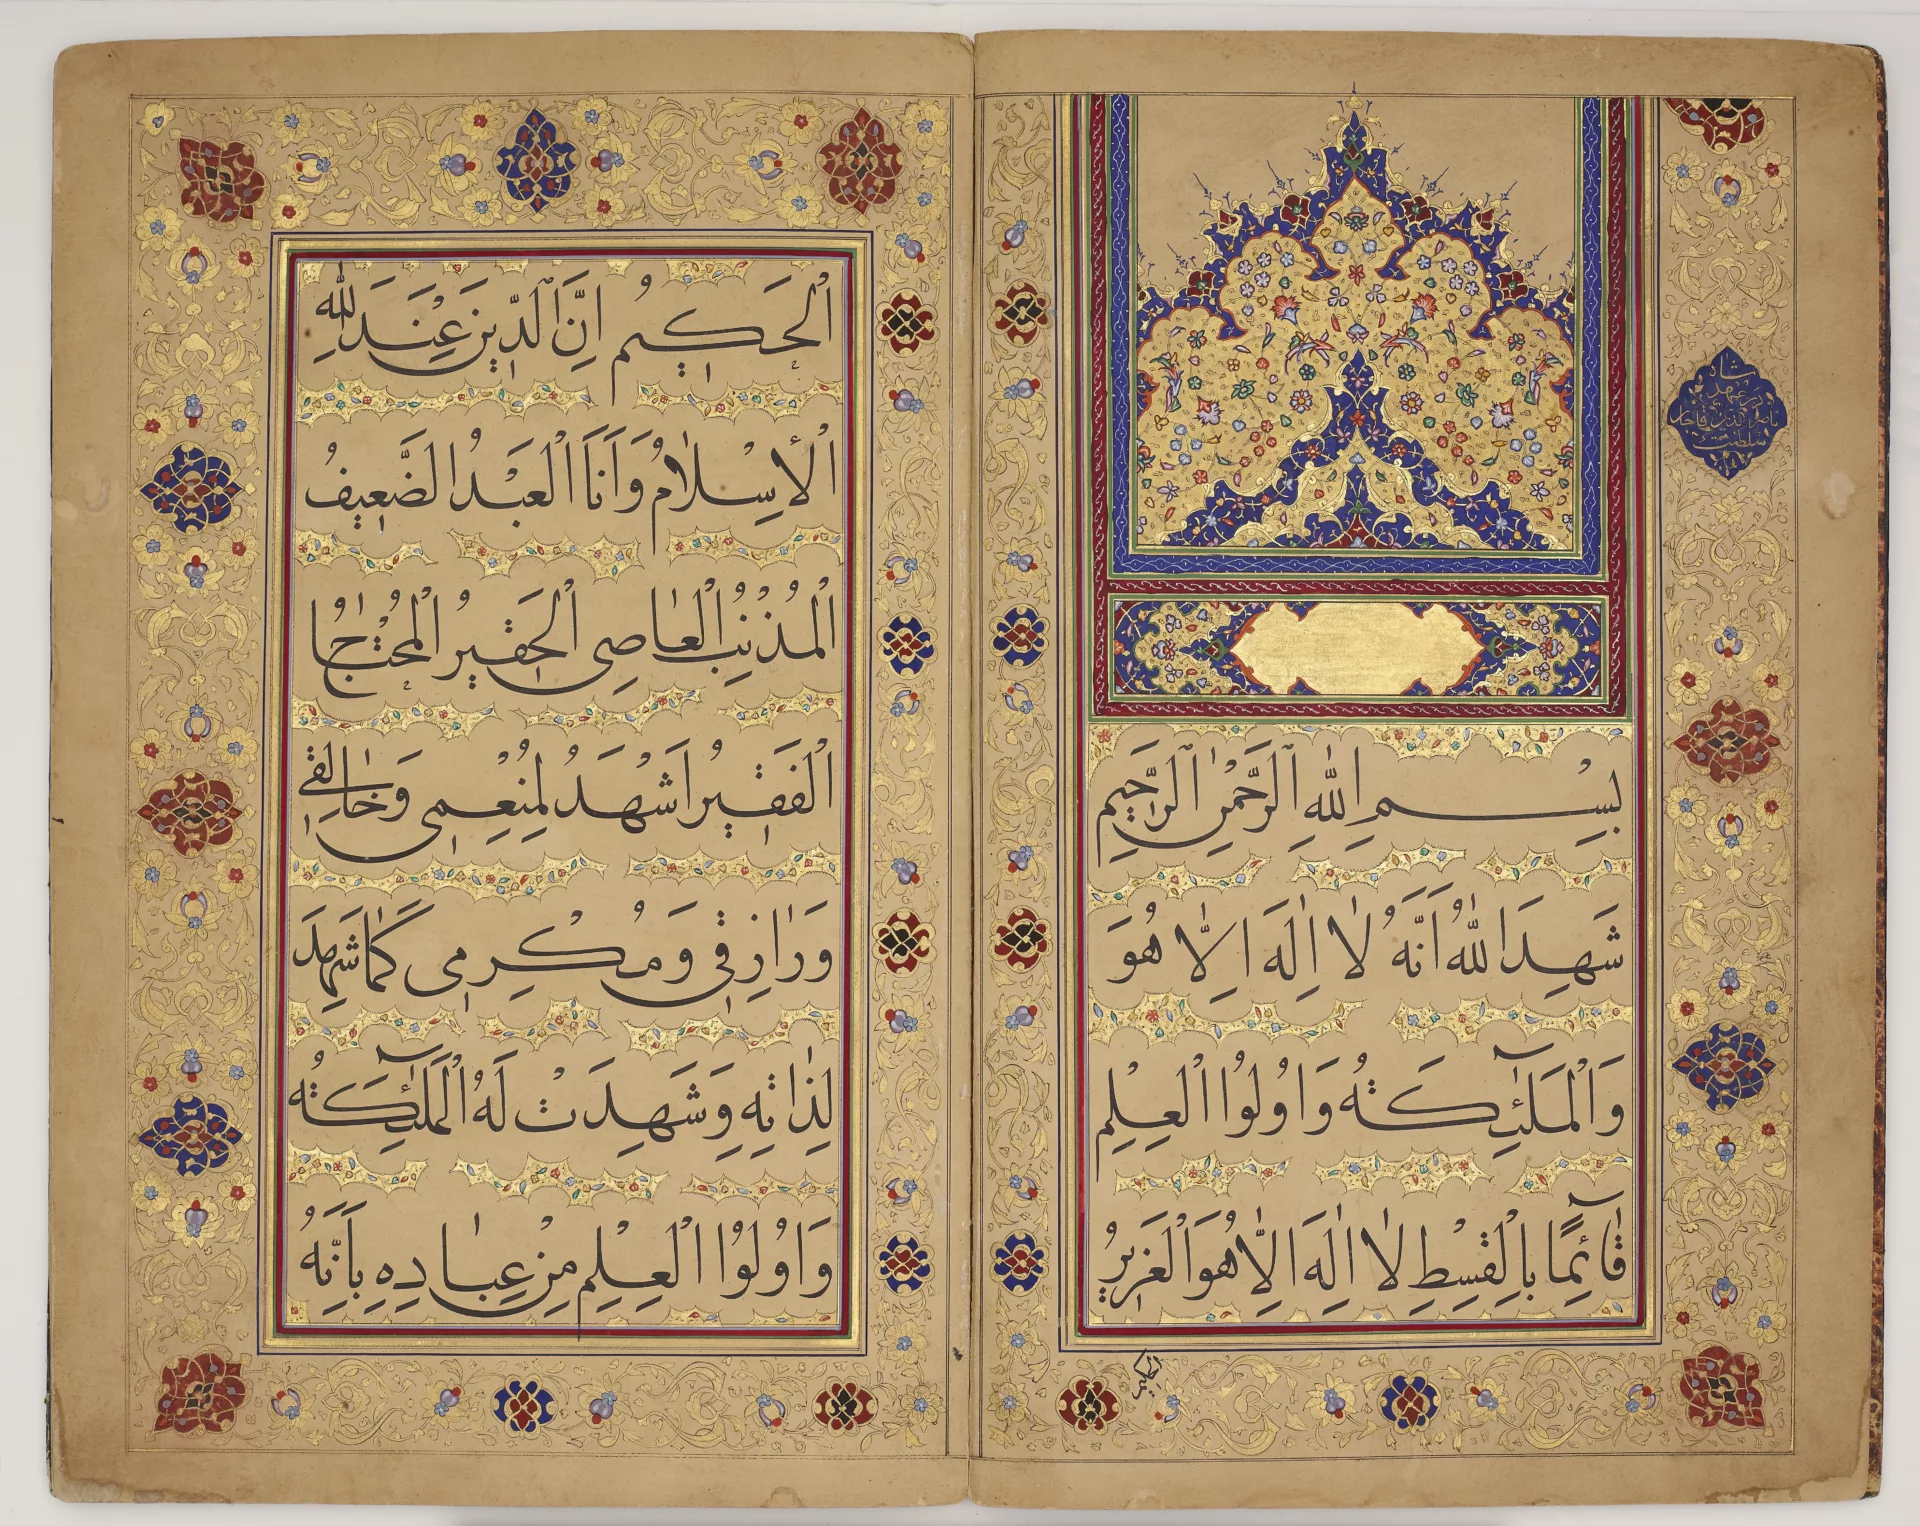 بِسْمِ اللّٰهِ الرَّحْمٰنِ الرَّحِيمِ
شَهِدَ اللّٰهُ اَنَّهُ لَا اِلٰهَ اِلَّا هُوَ
وَالْمَلٰٓئِكَتُهُ وَاُولُوا الْعِلْمِ
قَآئِمًا بِالْقِسْطِ لَا اِلٰهَ اِلَّا هُوَ الْعَزِيزُ
الحكيم
الْحَكِيمُ اِنَّ الدِّينَ عِنْدَ اللّٰهِ
الْاِسْلَامُ وَاَنَا الْعَبْدُ الضَّعِيفُ
الْمُذْنِبُ الْعَاصِي الْحَقِيرُ الْمُحْتَاجُ ا
لْفَقِيرُ اَشْهَدُ لِمُنْعِمِي وَخَالِقِي
وَرَازِقِي وَمُكْرِمِي كَمَا شَهِدَ
لِذَاتِهِ وَشَهِدَتْ لَهُ الْمَلٰٓئِكَتُه
وَاُولُوا الْعِلْمِ مِنْ عِبَادِهِ بِاَنَّهُ